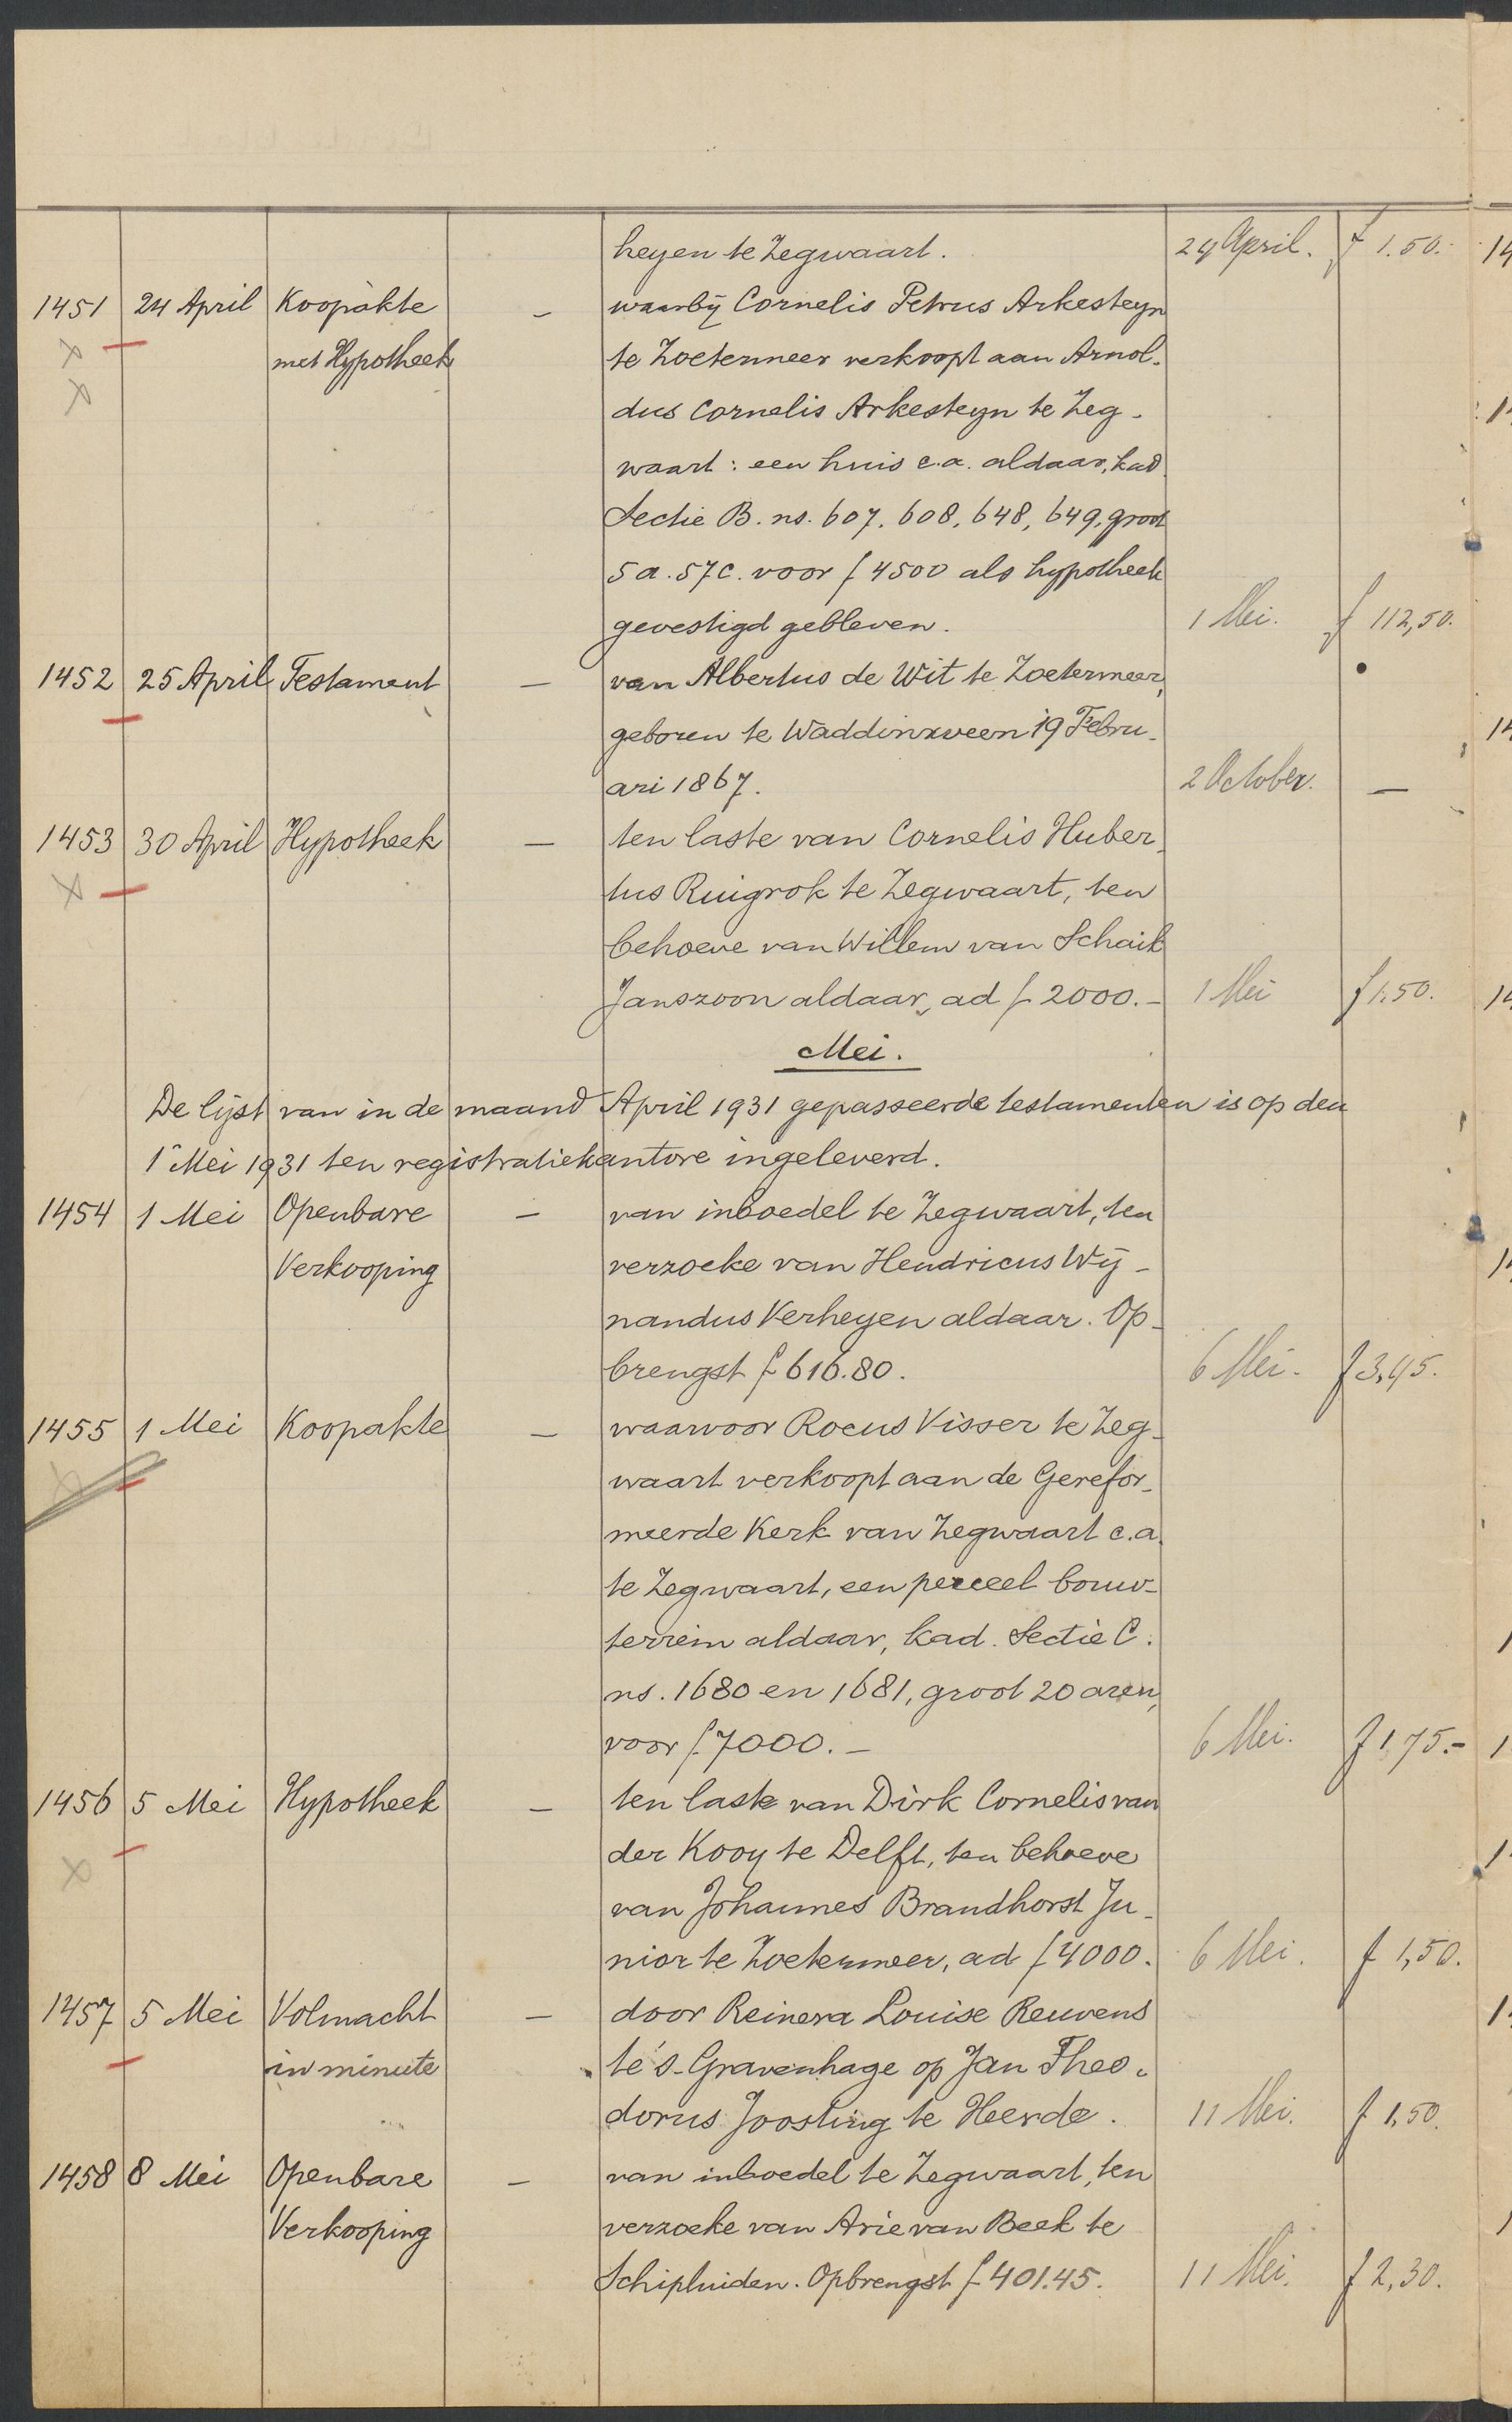 heyen te Zegwaart. 29 April. f 1.50.
1451 24 April Koopakte – waarbij Cornelis Petrus Arkesteyn
met Hypotheek te Zoetermeer verkoopt aan Arnol-
dus Cornelis Arkesteyn te Zeg-
waart: een huis c.a. aldaar, kad.
Sectie B. ns. 607, 608, 648, 649, groot
5 a. 57 c. voor f 4500 als hypotheek
gevestigd gebleven. 1 Mei. f 112,50.
1452 25 April Testament – van Albertus de Wit te Zoetermeer,
geboren te Waddinxveen 19 Febru-
ari 1867. 2 October. –
1453 30 April Hypotheek – ten laste van Cornelis Huber-
tus Ruigrok te Zegwaart, ten
behoeve van Willem van Schaik
Janszoon aldaar, ad f 2000.– 1 Mei f 1,50.
Mei.
De lijst van in de maand April 1931 gepasseerde testamenten is op den
1e Mei 1931 ten registratiekantore ingeleverd.
1454 1 Mei Openbare – van inboedel te Zegwaart, ten
Verkooping verzoeke van Hendricus Wij-
nandus Verheyen aldaar. Op-
brengst f 616.80. 6 Mei. f 3,45.
1455 1 Mei Koopakte – waarvoor Rocus Visser te Zeg-
waart verkoopt aan de Gerefor-
meerde Kerk van Zegwaart c.a.
te Zegwaart, een perceel bouw-
terrein aldaar, kad. Sectie C.
ns. 1680 en 1681, groot 20 aren,
voor f 7000.– 6 Mei. f 175.–
1456 5 Mei Hypotheek – ten laste van Dirk Cornelis van
der Kooy te Delft, ten behoeve
van Johannes Brandhorst Ju-
nior te Zoetermeer, ad f 4000. 6 Mei. f 1,50.
1457 5 Mei Volmacht – door Reinera Louise Reuvens
in minute te 's-Gravenhage op Jan Theo-
dorus Joosting te Heerde. 11 Mei. f 1,50.
1458 8 Mei Openbare – van inboedel te Zegwaart, ten
Verkooping verzoeke van Arie van Beek te
Schipluiden. Opbrengst f 401.45. 11 Mei. f 2,30.